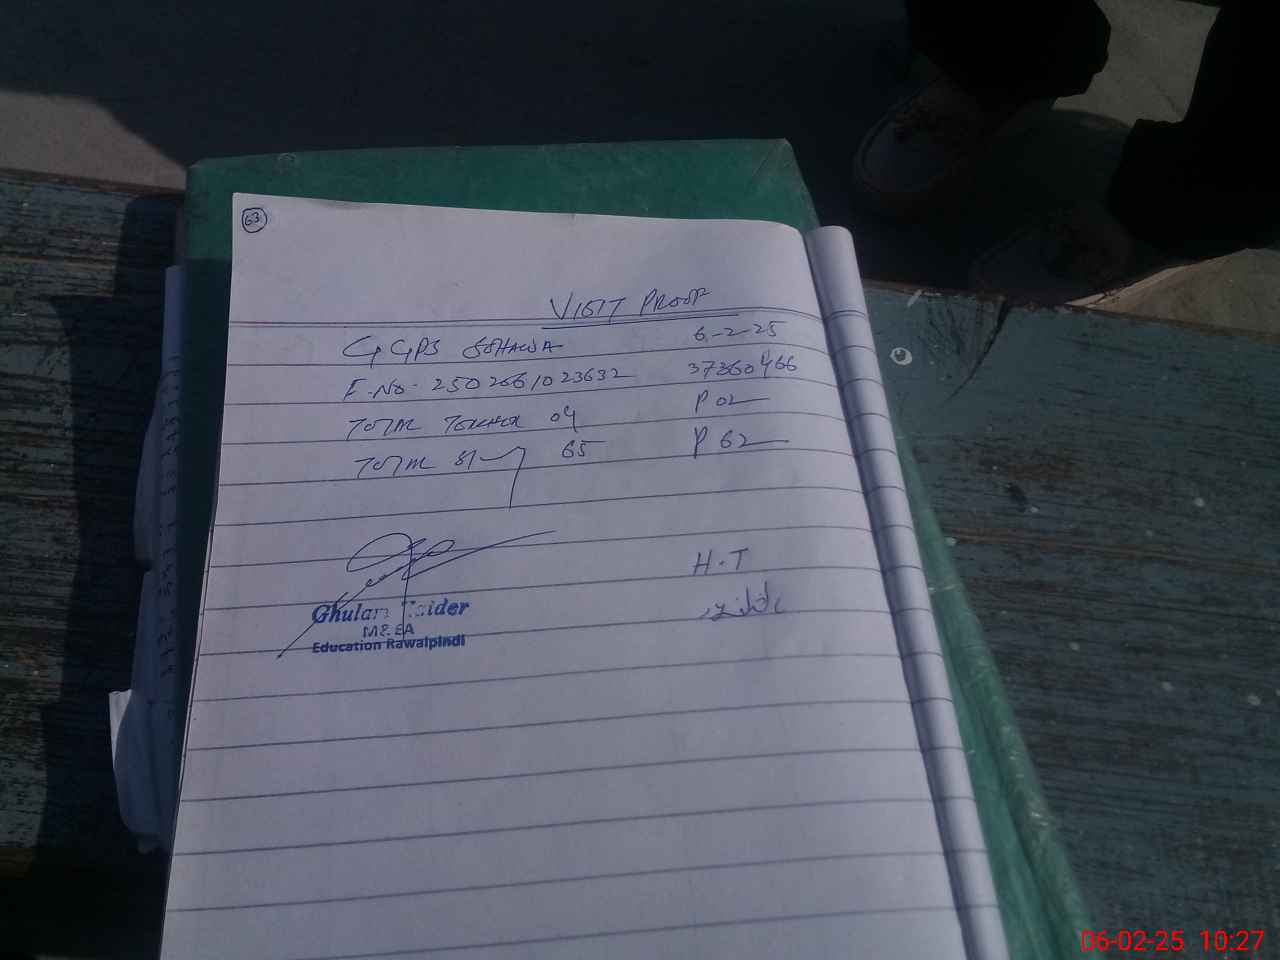 63
VISIT PROOF
GGPS SOHAWA 6-2-25
F-No. 2502661023632 37360466
TOTAL TEACHER 04 P 02
TOTAL ST 65 P 62
Ghulam Haider
M&EA
Education Rawalpindi
H.T
06-02-25 10:27